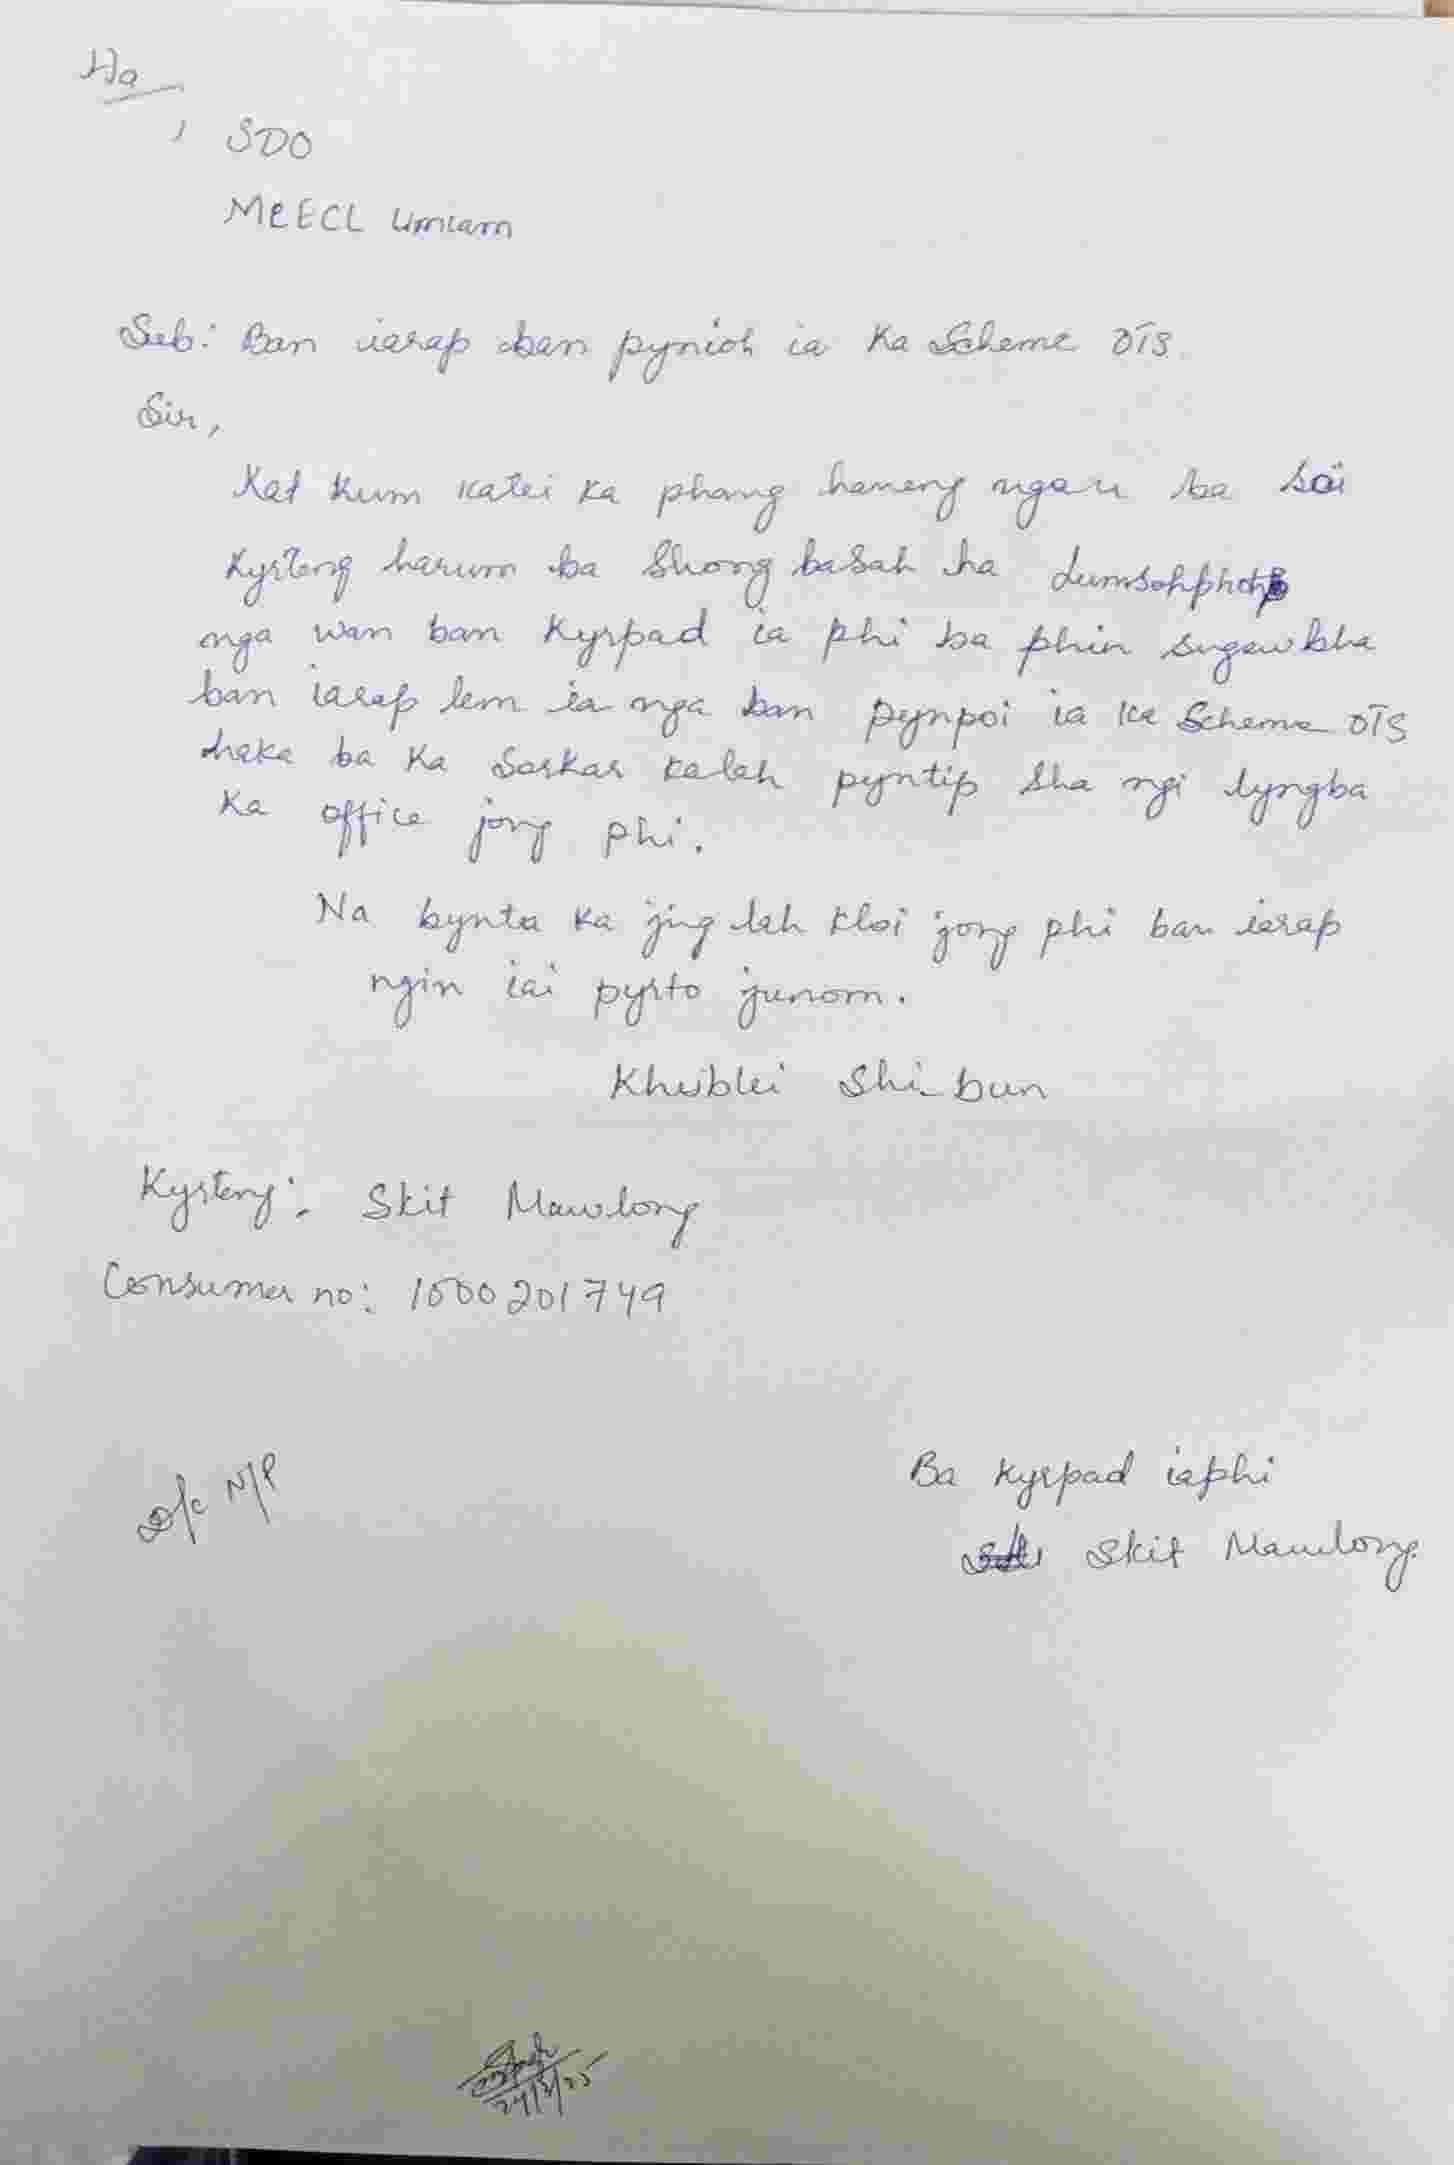 Ha
, SDO
MeECL Umiam
Sub: Ban iarap ban pynioh ia Ka Scheme OTS.
Sir,
Kat kum katei ka phang haneng nga u ba soi
kyrteng harum ba shong basah ha Lumsohphoh
nga wan ban Kyrpad ia phi ba phin sngewbha
ban iarap lem ia nga ban pynpoi ia ka Scheme OTS
haka ba ka Sorkar kalah pyntip sha ngi lyngba
Ka office jong phi.
Na bynta ka jing lah kloi jong phi ban iarap
ngin iai pyrto junom.
Khublei Shi-bun
Kyrteng:- Skit Mawlong
Consumer no: 1000201749
Ba kyrpad iaphi
Skit Mawlong.
D/c N/P
24/3/25